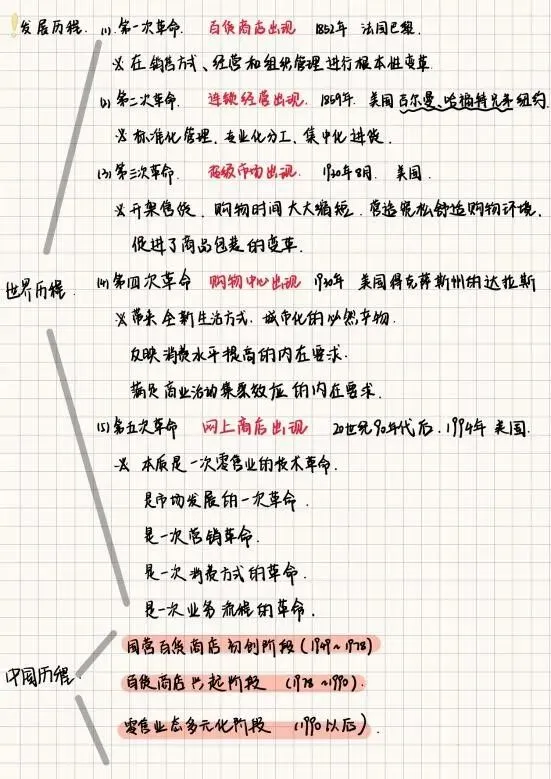 ! 发展历程. (1) 第一次革命. 百货商店出现 1852年 法国巴黎.
※ 在销售方式、经营和组织管理进行根本性变革.
(2) 第二次革命. 连锁经营出现. 1859年. 美国吉尔曼、哈福特兄弟纽约.
※ 标准化管理、专业化分工、集中化进货.
(3) 第三次革命. 超级市场出现. 1930年8月. 美国.
※ 开架售货. 购物时间大大缩短. 营造宽松舒适购物环境.
促进了商品包装的变革.
世界历程.
(4) 第四次革命 购物中心出现. 1930年 美国得克萨斯州的达拉斯
※ 带来全新生活方式. 城市化的必然产物.
反映消费水平提高的内在要求.
满足商业活动集聚效应的内在要求.
(5) 第五次革命 网上商店出现 20世纪90年代后. 1994年 美国.
※ 本质是一次零售业的技术革命.
是市场发展的一次革命.
是一次营销革命.
是一次消费方式的革命.
是一次业务流程的革命.
中国历程.
国营百货商店初创阶段 (1949~1978)
百货商店兴起阶段 (1978~1990).
零售业态多元化阶段 (1990以后).